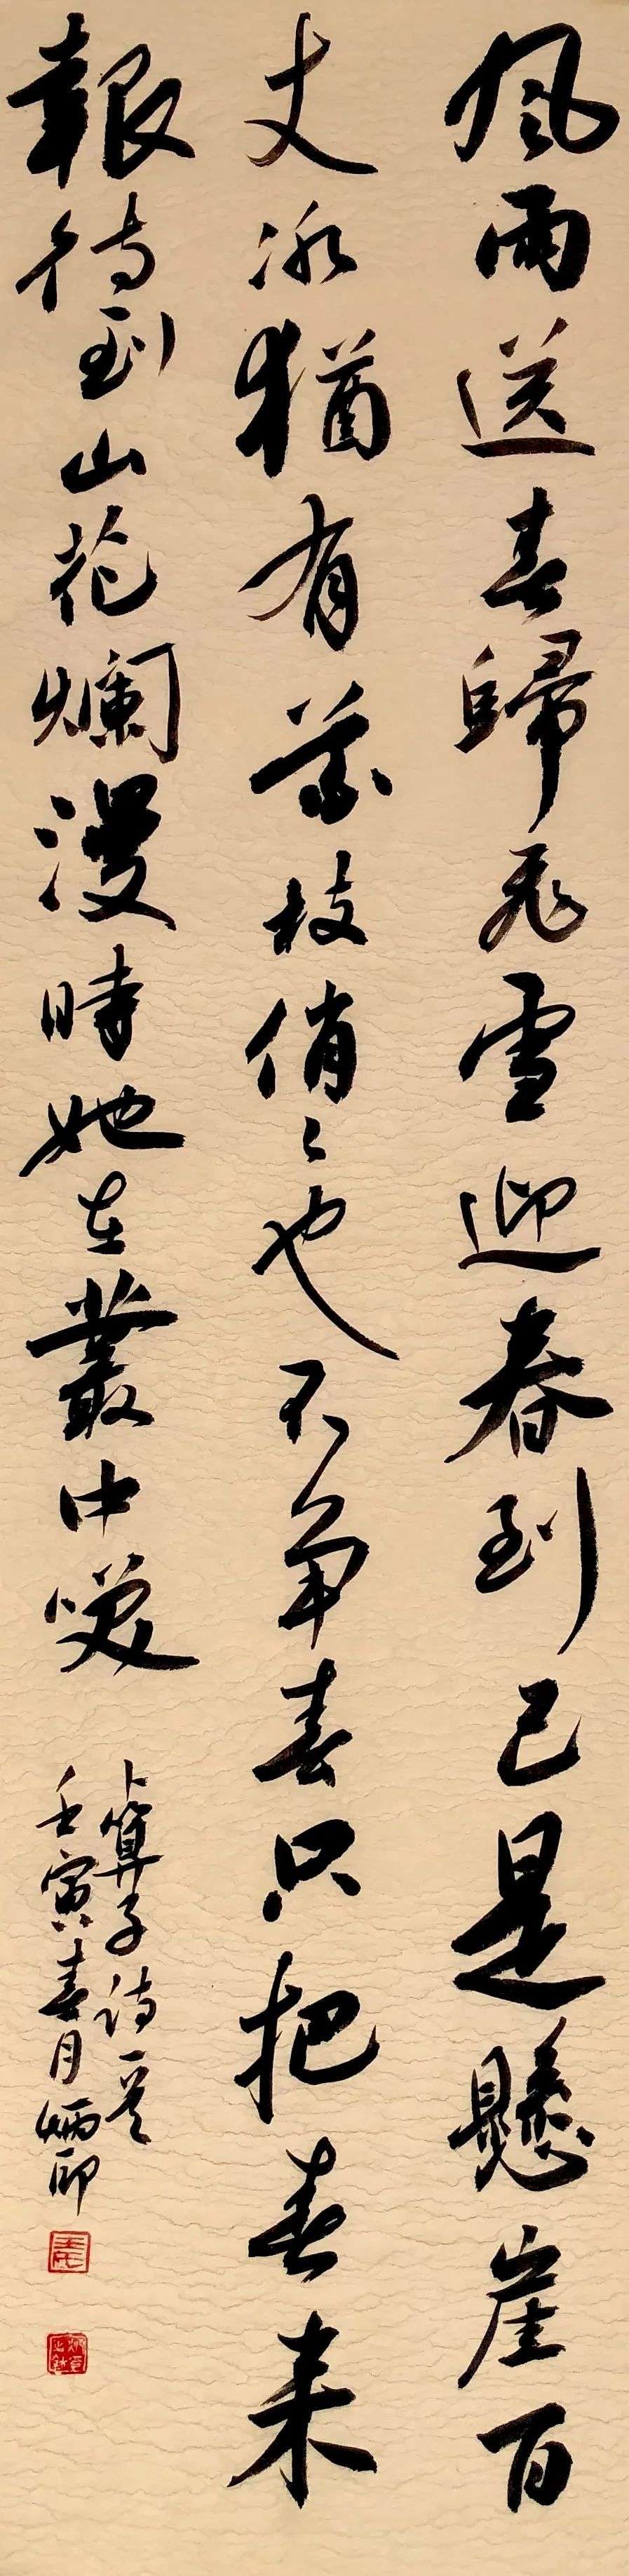 風雨送春歸飛雪迎春到已是懸崖百
丈冰猶有花枝俏俏也不爭春只把春来
報待到山花爛漫時她在叢中咲
卜算子詩一首
壬寅春月炳印